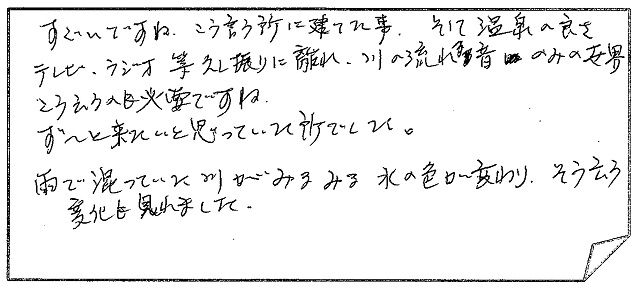 すごいですね。こう言う所に建てた事、そして温泉の良さ
テレビ、ラジオ等久し振りに離れ、川の流れる音のみの世界
こう云うのも必要ですね。
ず〜と来たいと思っていた所でした。
雨で混っていた川がみるみる水の色が変わり、そう云う
変化も見れました。